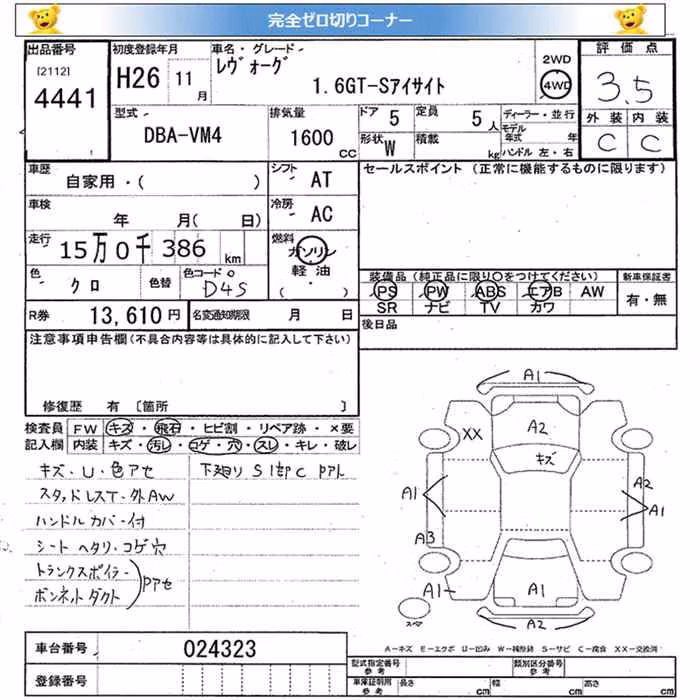 完全ゼロ切りコーナー
出品番号 [2112] 4441
初度登録年月 H26 11月
車名・グレード レヴォーグ 1.6GT-Sアイサイト
2WD 4WD
評価点 3.5
外装 内装
C C
型式 DBA-VM4
排気量 1600 CC
ドア 5 定員 5人
形状 W 積載 kg
ディーラー・並行
モデル年式 年
ハンドル 左・右
車歴 自家用・( )
シフト AT
セールスポイント (正常に機能するものに限ります)
車検 年 月( 日)
冷房 AC
走行 15万0千386 km
燃料 ガソリン 軽油 ( ・ )
色 クロ 色替 色コード D4S
装備品 (純正品に限り○をつけてください) 新車保証書
PS PW ABS エアB AW 有・無
SR ナビ TV カワ
R券 13,610円 名変通知期限 月 日
後日品
注意事項申告欄(不具合内容等は具体的に記入して下さい)
修復歴 有 〔箇所 〕
検査員 FW キズ・飛石・ヒビ割・リペア跡・×要
記入欄 内装 キズ・汚レ・コゲ・穴・スレ・キレ・破レ
キズ・U・色アセ 下廻り S 1部C PPアト
スタッドレスT・外AW
ハンドルカバー付
シートヘタリ・コゲ穴
トランクスポイラー
ボンネットダクト PPアセ
A1
A2
XX
キズ
A1
A2
A1
A3
A1
A1
A2
スペア
A-キズ E-エクボ U-凹み W-補修跡 S-サビ C-腐食 XX-交換済
車台番号 024323
登録番号
型式指定番号 参考 類別区分番号 参考
車庫証明用 参考 長さ cm 幅 cm 高さ cm